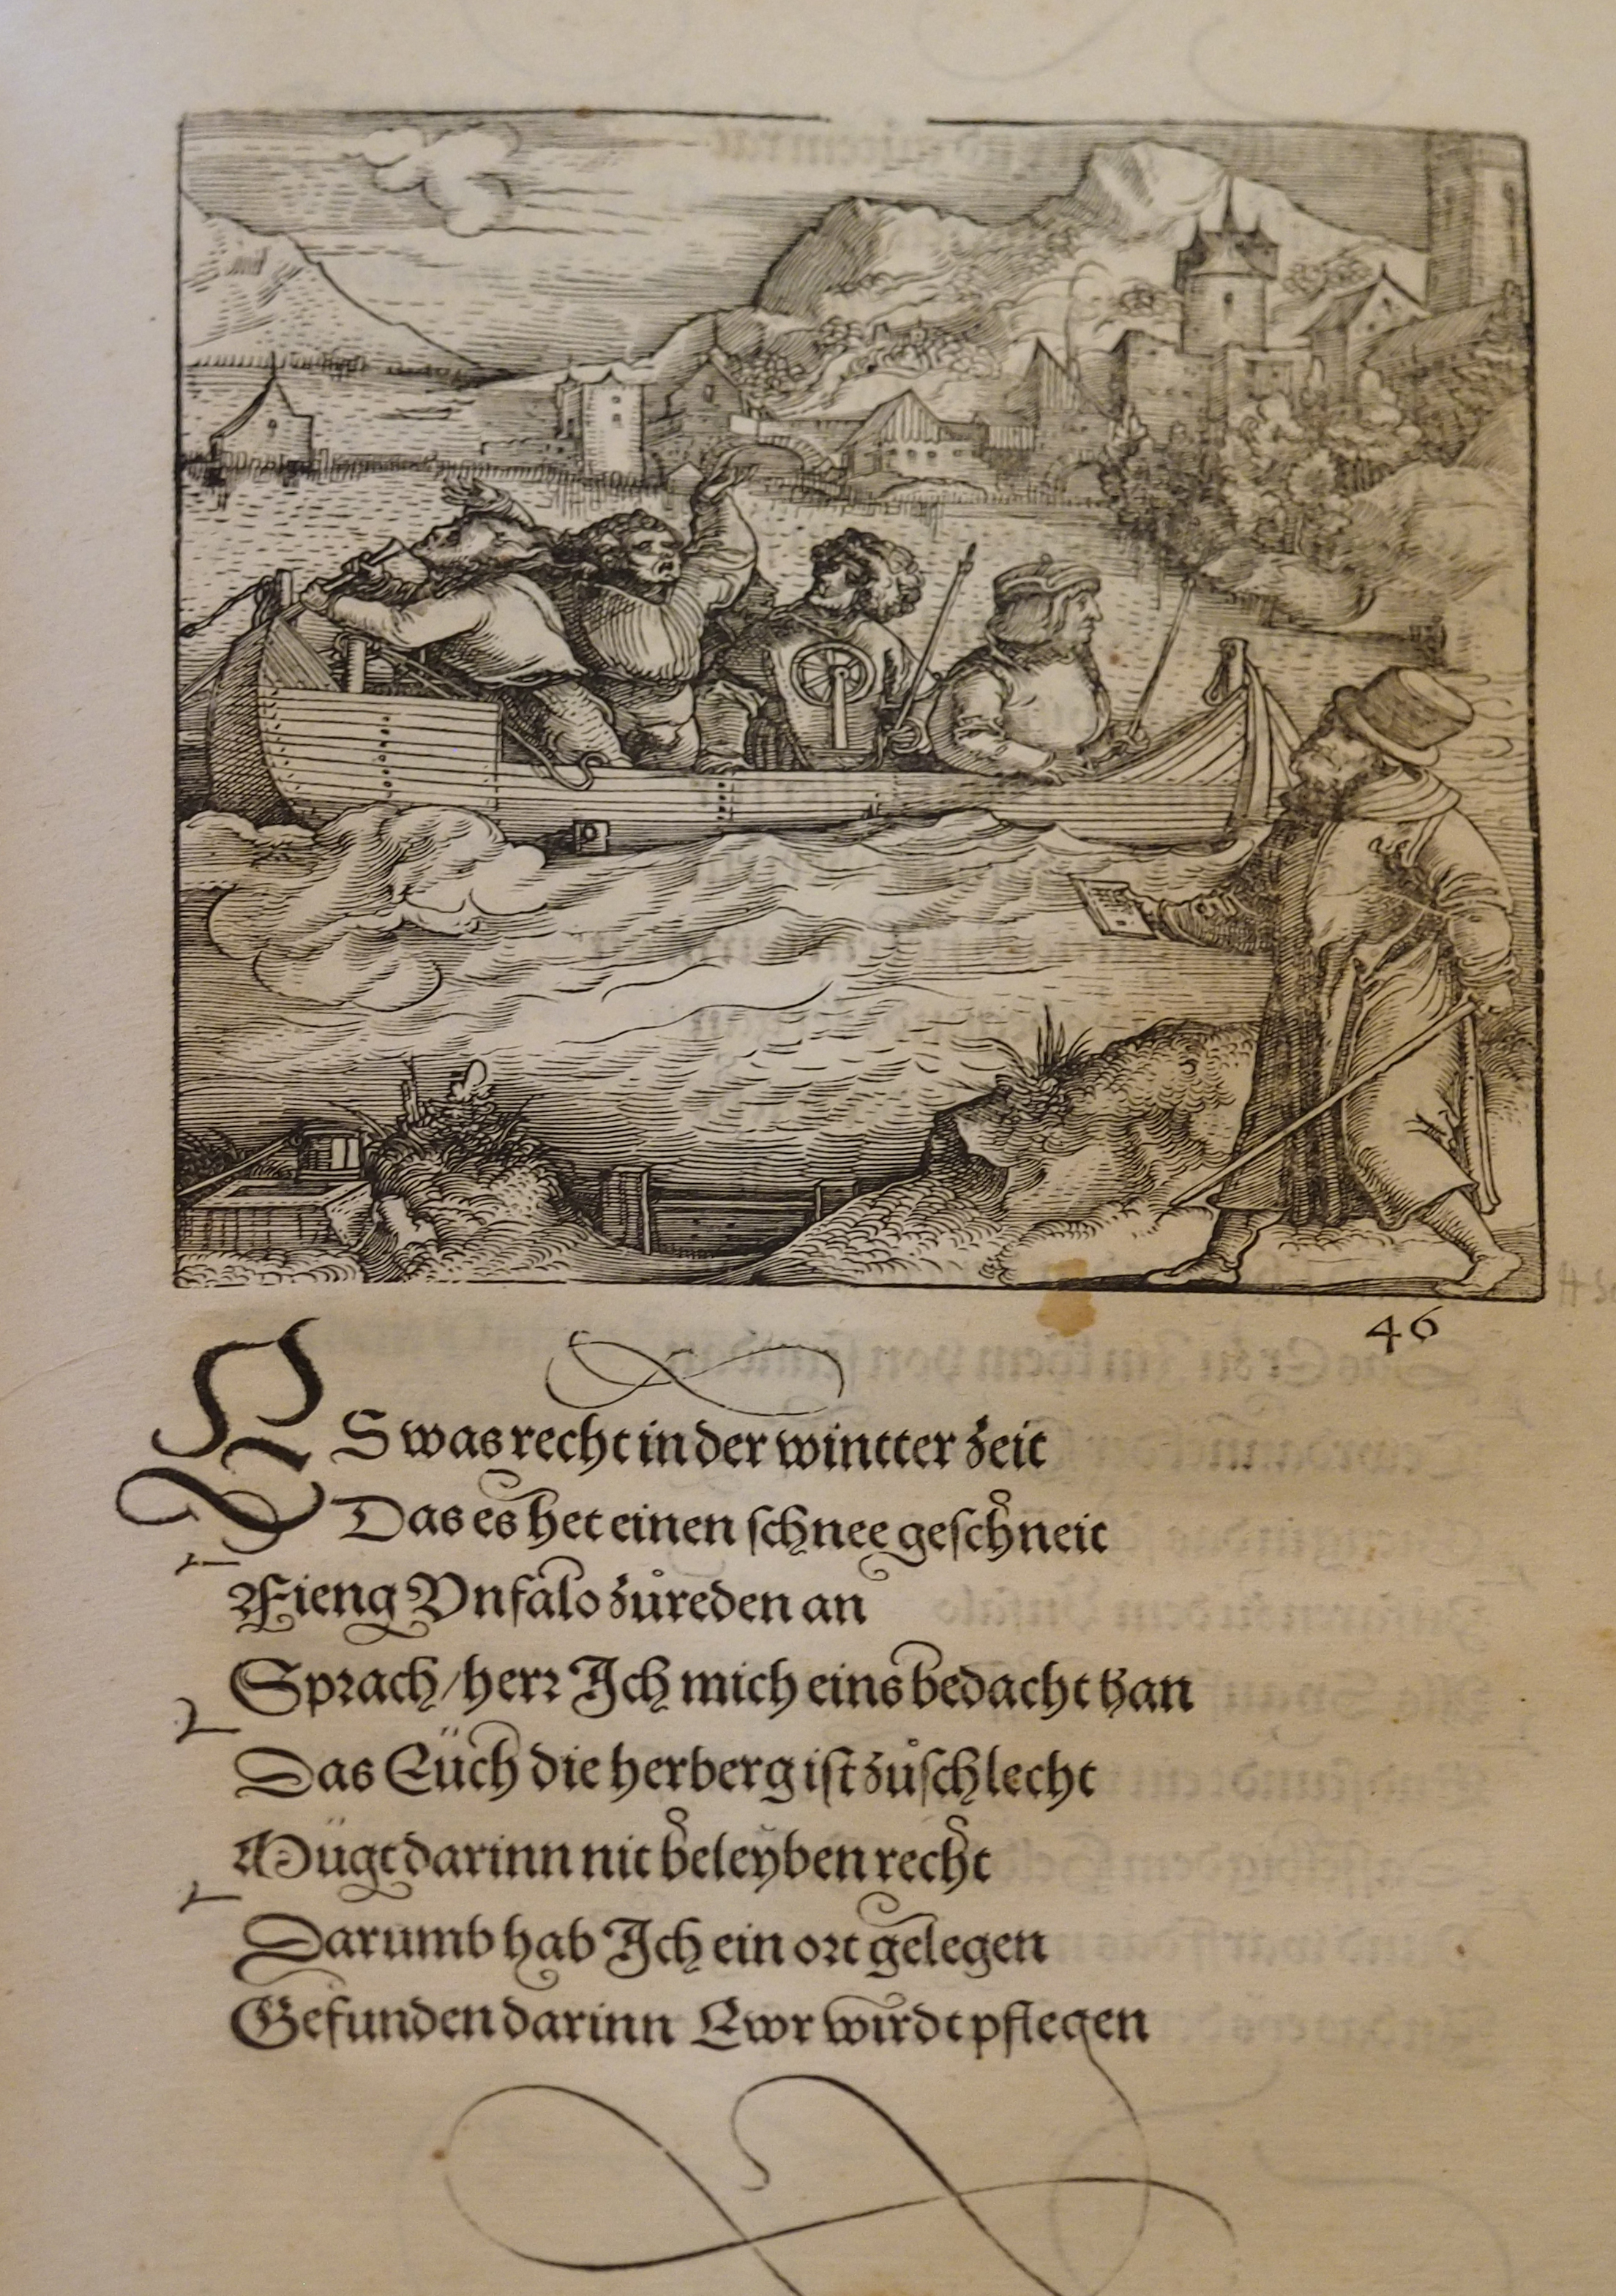 46
ES was recht in der wintter zeit
Das es het einen schnee geschneit
Fieng Vnfalo zůreden an
Sprach/herr Ich mich eins bedacht han
Das Eüch die herberg ist zůschlecht
Mügt darinn nit beleyben recht
Darumb hab Ich ein ort gelegen
Gefunden darinn Ewr wirdt pflegen